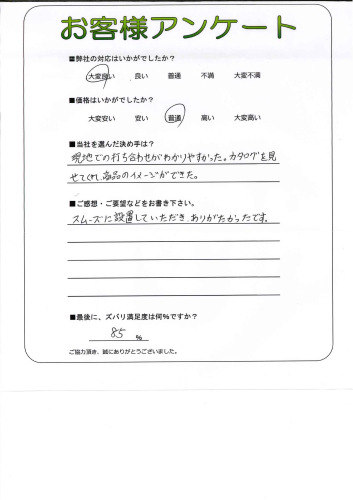 お客様アンケート
■弊社の対応はいかがでしたか？
大変良い 良い 普通 不満 大変不満
■価格はいかがでしたか？
大変安い 安い 普通 高い 大変高い
■当社を選んだ決め手は？
現地での打ち合わせがわかりやすかった。カタログを見
せてくれ、商品のイメージができた。
■ご感想・ご要望などをお書き下さい。
スムーズに設置していただき、ありがたかったです。
■最後に、ズバリ満足度は何%ですか？
85 %
ご協力頂き、誠にありがとうございました。